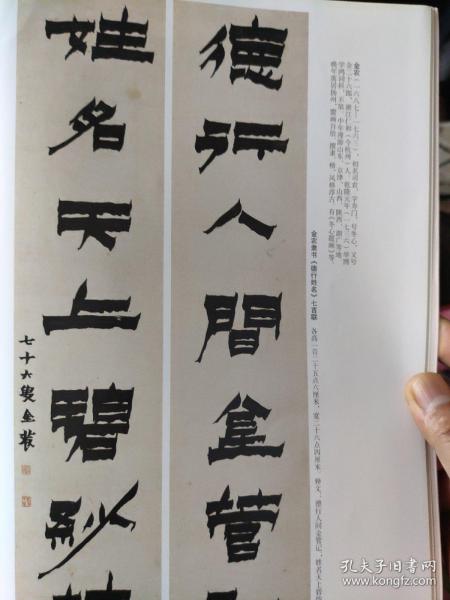 金农(一六八七—一七六三),初名司农,字寿门,号冬心,又号
金二十六郎,浙江仁和(今杭州)人。乾隆元年(一七三六)举博
学鸿词科,不第。中年遍游山东、京津、山西、陕西、湖广等地,
晚年寓居扬州,鬻画自给。擅隶、楷,风格淳古。有《冬心题画》等。
金农隶书《德行姓名》七言联 各高一百二十五点六厘米,宽二十六点四厘米。释文:德行人间金管记;姓名天上碧
德行人間金管
姓名天上碧紗
七十六叟金農
孔夫子旧书网